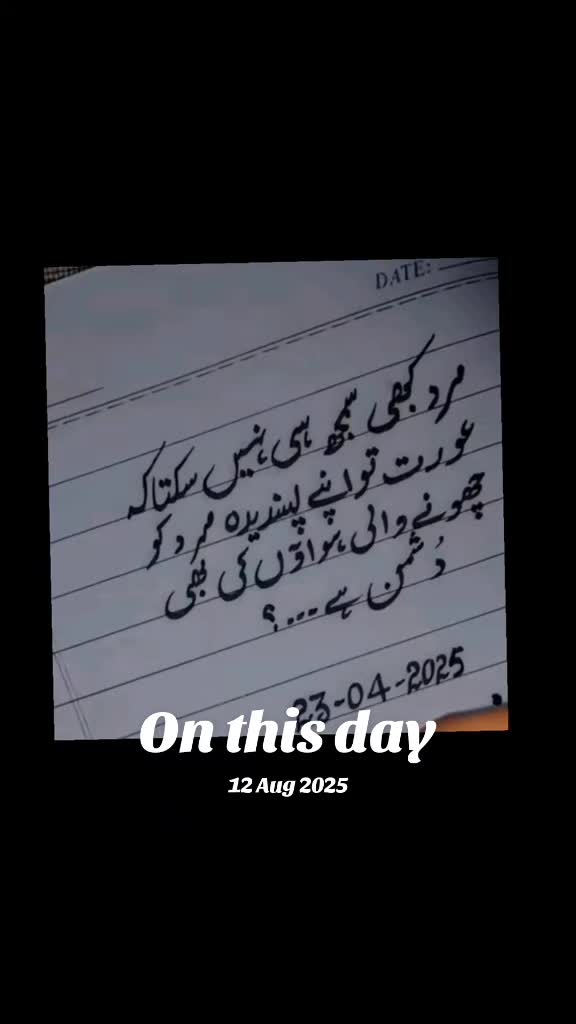 DATE:
مرد کبھی سمجھ ہی نہیں سکتا کہ
عورت تو اپنے پسندیدہ مرد کو
چھونے والی ہواؤں کی بھی
دُشمن ہے ---؟
23-04-2025
On this day
12 Aug 2025